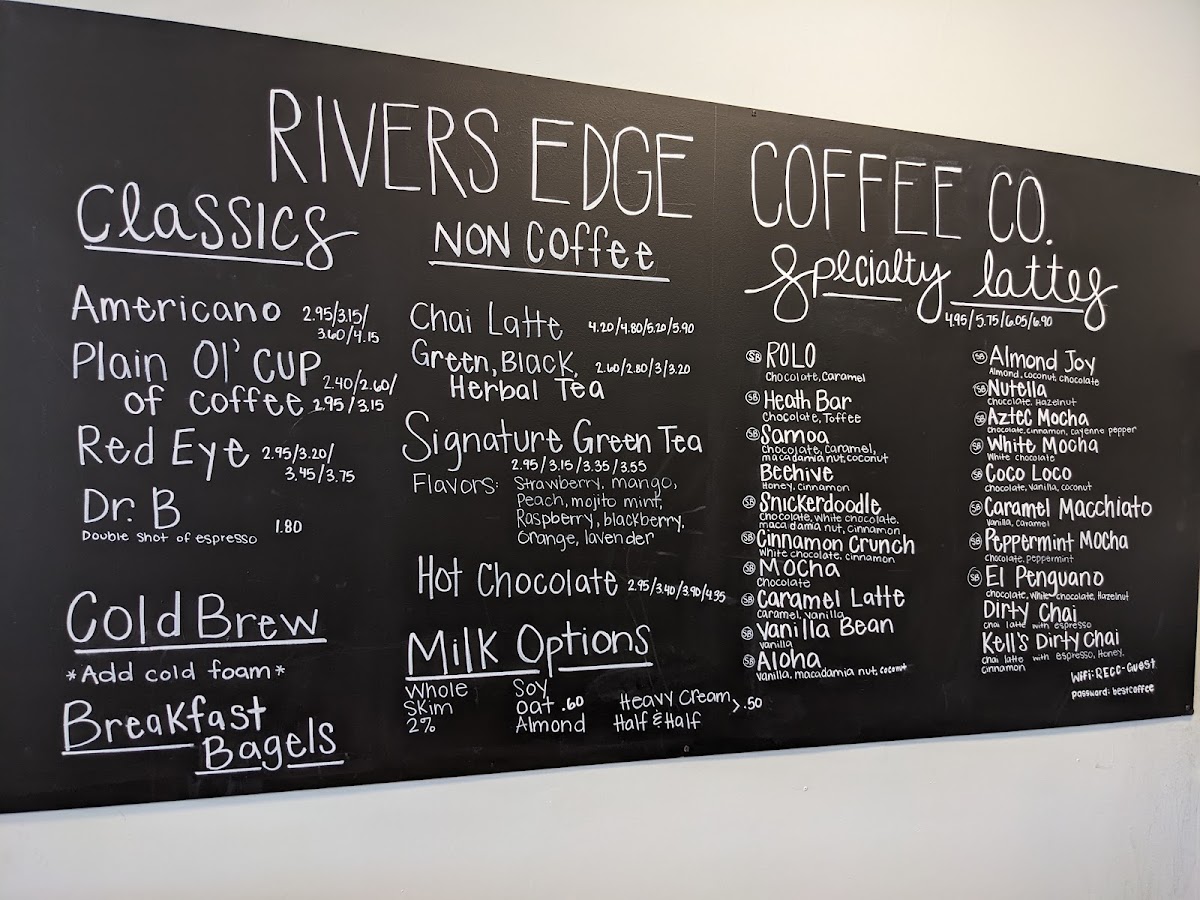 RIVERS EDGE COFFEE CO.
Classics
Americano 2.95/3.15/
3.60/4.15
Plain Ol' Cup
of coffee 2.40/2.60/
2.95/3.15
Red Eye 2.95/3.20/
3.45/3.75
Dr. B 1.80
Double shot of espresso
Cold Brew
*Add cold foam*
Breakfast
Bagels
NON Coffee
Chai Latte 4.20/4.80/5.20/5.90
Green, Black, 2.60/2.80/3/3.20
Herbal Tea
Signature Green Tea
2.95/3.15/3.35/3.55
Flavors: Strawberry, mango,
Peach, mojito mint,
Raspberry, blackberry,
orange, lavender
Hot Chocolate 2.95/3.40/3.90/4.35
Milk Options
Whole
Skim
2%
Soy
Oat .60
Almond
Heavy Cream
Half & Half > .50
Specialty lattes
4.95/5.75/6.05/6.90
SB ROLO
Chocolate, Caramel
SB Heath Bar
Chocolate, Toffee
SB Samoa
chocolate, caramel,
macadamia nut, coconut
Beehive
Honey, cinnamon
SB Snickerdoodle
chocolate, white chocolate,
macadamia nut, cinnamon
SB Cinnamon Crunch
White chocolate, cinnamon
SB Mocha
Chocolate
SB Caramel Latte
caramel, vanilla
SB Vanilla Bean
vanilla
SB Aloha
Vanilla, macadamia nut, coconut
SB Almond Joy
Almond, coconut, chocolate
SB Nutella
Chocolate, Hazelnut
SB Aztec Mocha
chocolate, cinnamon, cayenne pepper
SB White Mocha
White chocolate
SB Coco Loco
chocolate, vanilla, coconut
SB Caramel Macchiato
Vanilla, caramel
SB Peppermint Mocha
Chocolate, peppermint
SB El Penguano
chocolate, white chocolate, Hazelnut
Dirty Chai
chai latte with espresso
Kell's Dirty Chai
chai latte with espresso, Honey,
cinnamon
Wifi: RECC-Guest
password: bestcoffee